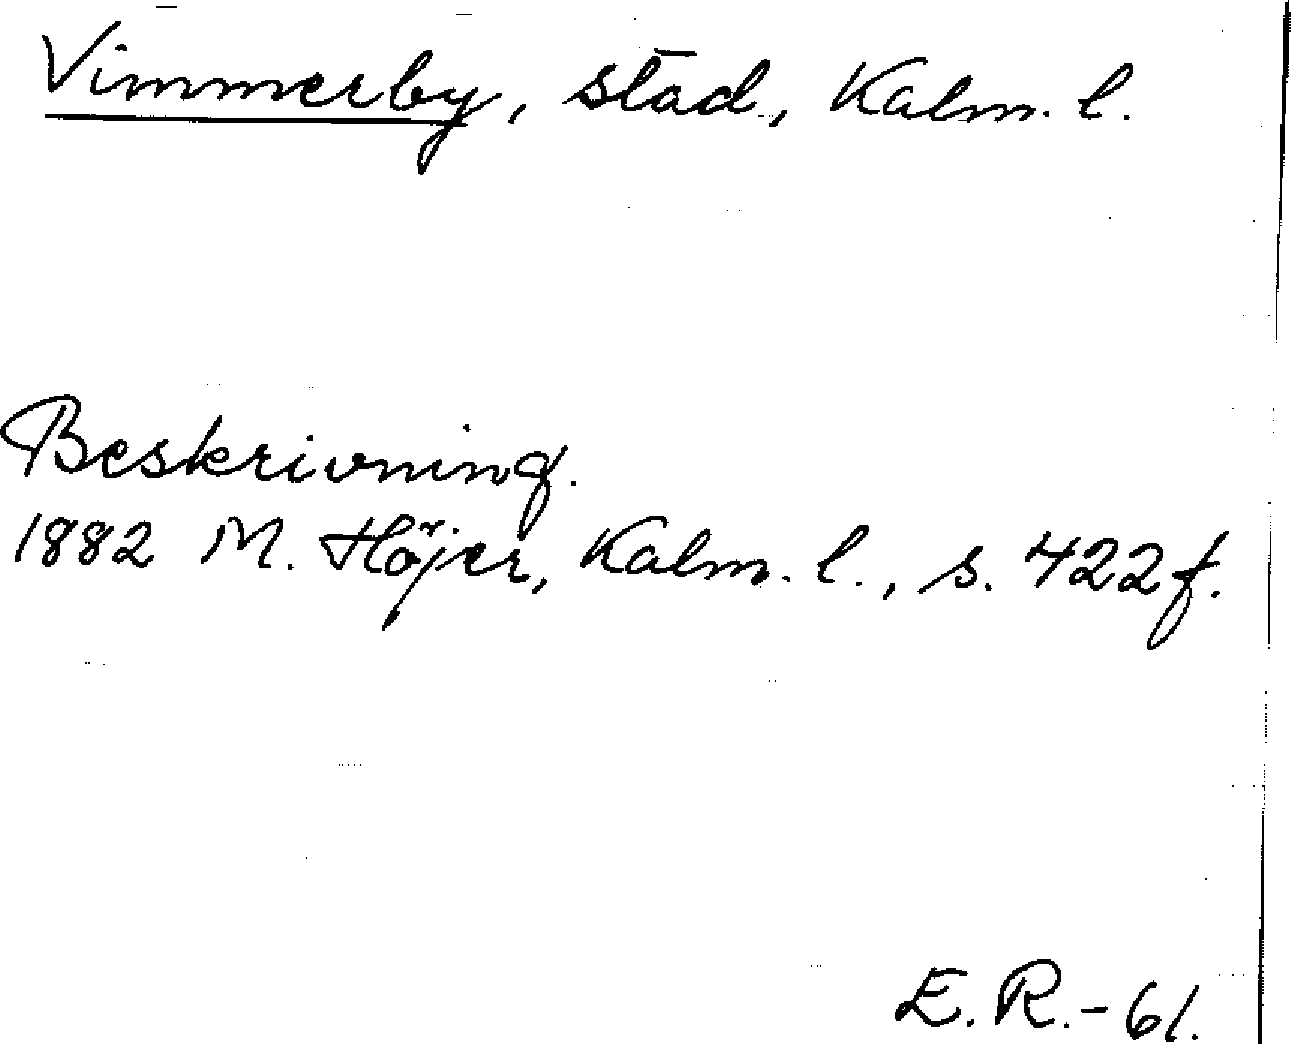 Vimmerby, stad, Kalm. l.
Beskrivning.
1882 M. Höjer, Kalm. l., s. 422 f.
E. R. - 61.